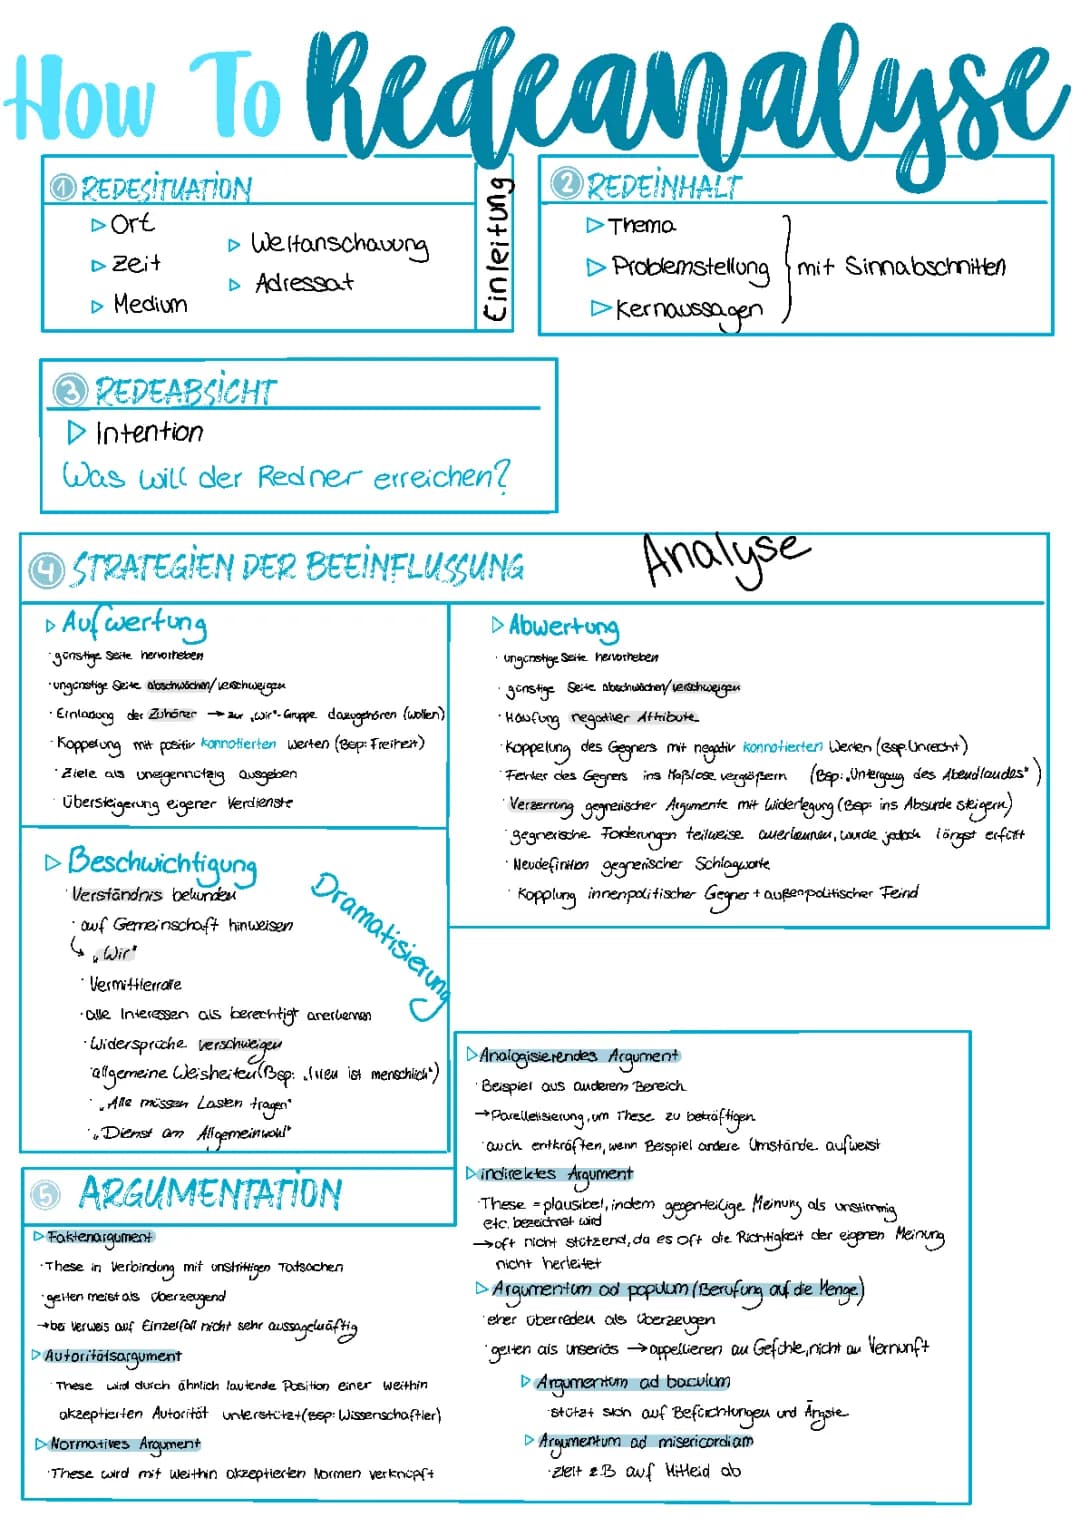 How To Redeanalyse
① REDESITUATION
▷ Ort
▷ Zeit
▷ Medium
▷ Weltanschauung
▷ Adressat
Einleitung
② REDEINHALT
▷ Thema
▷ Problemstellung
▷ Kernaussagen
mit Sinnabschnitten
③ REDEABSICHT
▷ Intention
Was will der Redner erreichen?
④ STRATEGIEN DER BEEINFLUSSUNG
Analyse
▷ Aufwertung
· günstige Seite hervorheben
· ungünstige Seite abschwächen/verschweigen
· Einladung der Zuhörer → zur "Wir"-Gruppe dazugehören (wollen)
· Koppelung mit positiv konnotierten Werten (Bsp: Freiheit)
· Ziele als uneigennützig ausgeben
· Übersteigerung eigener Verdienste
▷ Abwertung
· ungünstige Seite hervorheben
· günstige Seite abschwächen/verschweigen
· Häufung negativer Attribute
· Koppelung des Gegners mit negativ konnotierten Werten (Bsp. Unrecht)
· Fehler des Gegners ins Maßlose vergrößern (Bsp: "Untergang des Abendlandes")
· Verzerrung gegnerischer Argumente mit Widerlegung (Bsp: ins Absurde steigern)
· gegnerische Forderungen teilweise anerkennen, wurde jedoch längst erfüllt
· Neudefinition gegnerischer Schlagworte
· Kopplung innenpolitischer Gegner + außenpolitischer Feind
▷ Beschwichtigung
· Verständnis bekunden
· auf Gemeinschaft hinweisen
↳ "Wir"
· Vermittlerrolle
· alle Interessen als berechtigt anerkennen
· Widersprüche verschweigen
· allgemeine Weisheiten (Bsp: "Irren ist menschlich")
· "Alle müssen Lasten tragen"
· "Dienst am Allgemeinwohl"
Dramatisierung
⑤ ARGUMENTATION
▷ Faktenargument
· These in Verbindung mit unstrittigen Tatsachen
· gelten meist als überzeugend
→ bei Verweis auf Einzelfall nicht sehr aussagekräftig
▷ Autoritätsargument
· These wird durch ähnlich lautende Position einer weithin
akzeptierten Autorität unterstützt (Bsp: Wissenschaftler)
▷ Normatives Argument
· These wird mit weithin akzeptierten Normen verknüpft
▷ Analogisierendes Argument
· Beispiel aus anderem Bereich
→ Parellelisierung, um These zu bekräftigen
· auch entkräften, wenn Beispiel andere Umstände aufweist
▷ indirektes Argument
· These = plausibel, indem gegenteilige Meinung als unstimmig
etc. bezeichnet wird
→ oft nicht stützend, da es oft die Richtigkeit der eigenen Meinung
nicht herleitet
▷ Argumentum ad populum (Berufung auf die Menge)
· eher überreden als überzeugen
· gelten als unseriös → appellieren an Gefühle, nicht an Vernunft
▷ Argumentum ad baculum
· stützt sich auf Befürchtungen und Ängste
▷ Argumentum ad misericordiam
· zielt z.B auf Mitleid ab